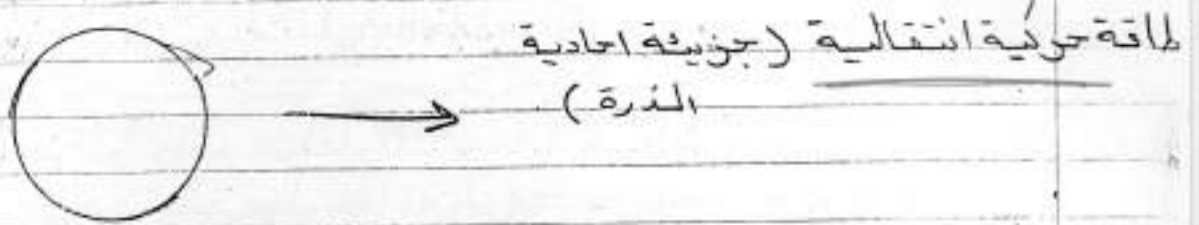 طاقة حركية انتقالية (جزيئة احادية
الذرة)